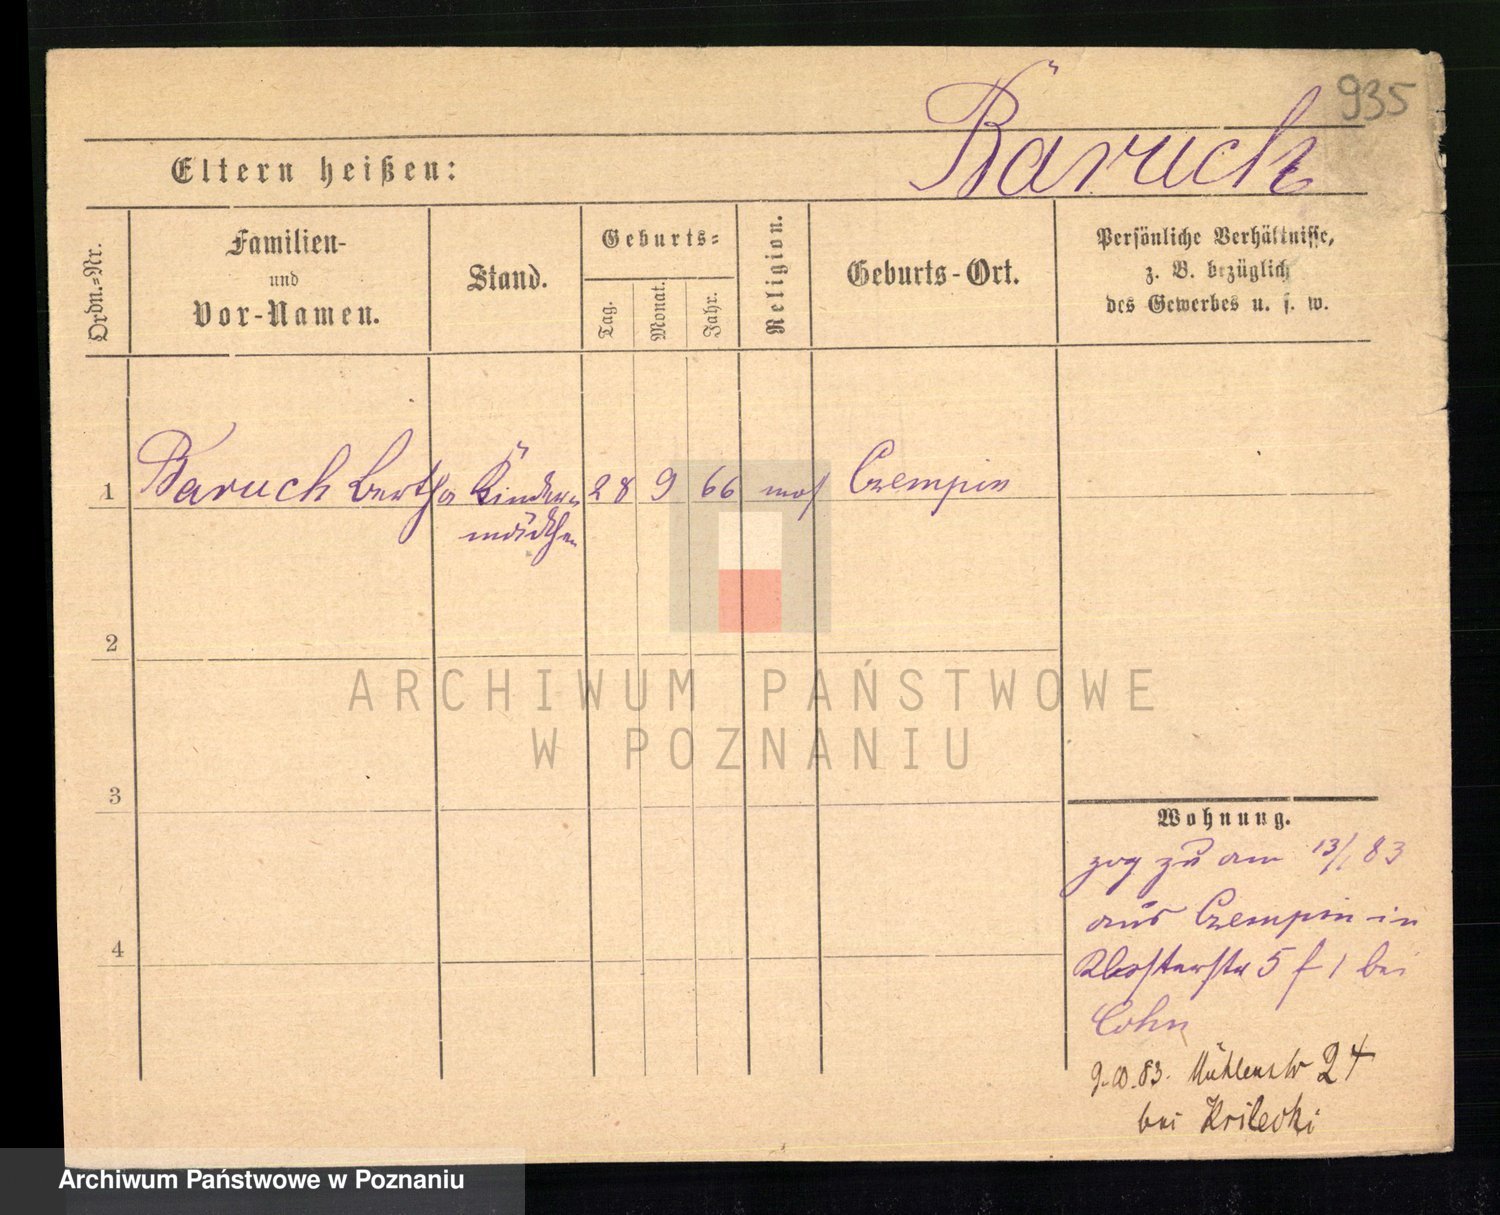 935
Baruch
Eltern heißen:
Ordn.-Nr.
Familien-
und
Vor-Namen.
Stand.
Geburts-
Tag.
Monat.
Jahr.
Religion.
Geburts-Ort.
Persönliche Verhältnisse,
z. B. bezüglich
des Gewerbes u. s. w.
1 Baruch Bertha Kinder- 28 9 66 mos Czempin
mädchen
2
3
4
ARCHIWUM PAŃSTWOWE
W POZNANIU
Wohnung.
zog zu am 13/1 83
aus Czempin in
Klosterstr 5 f 1 bei
Cohn
83. Mühlenstr 24
bei Krilecki
Archiwum Państwowe w Poznaniu